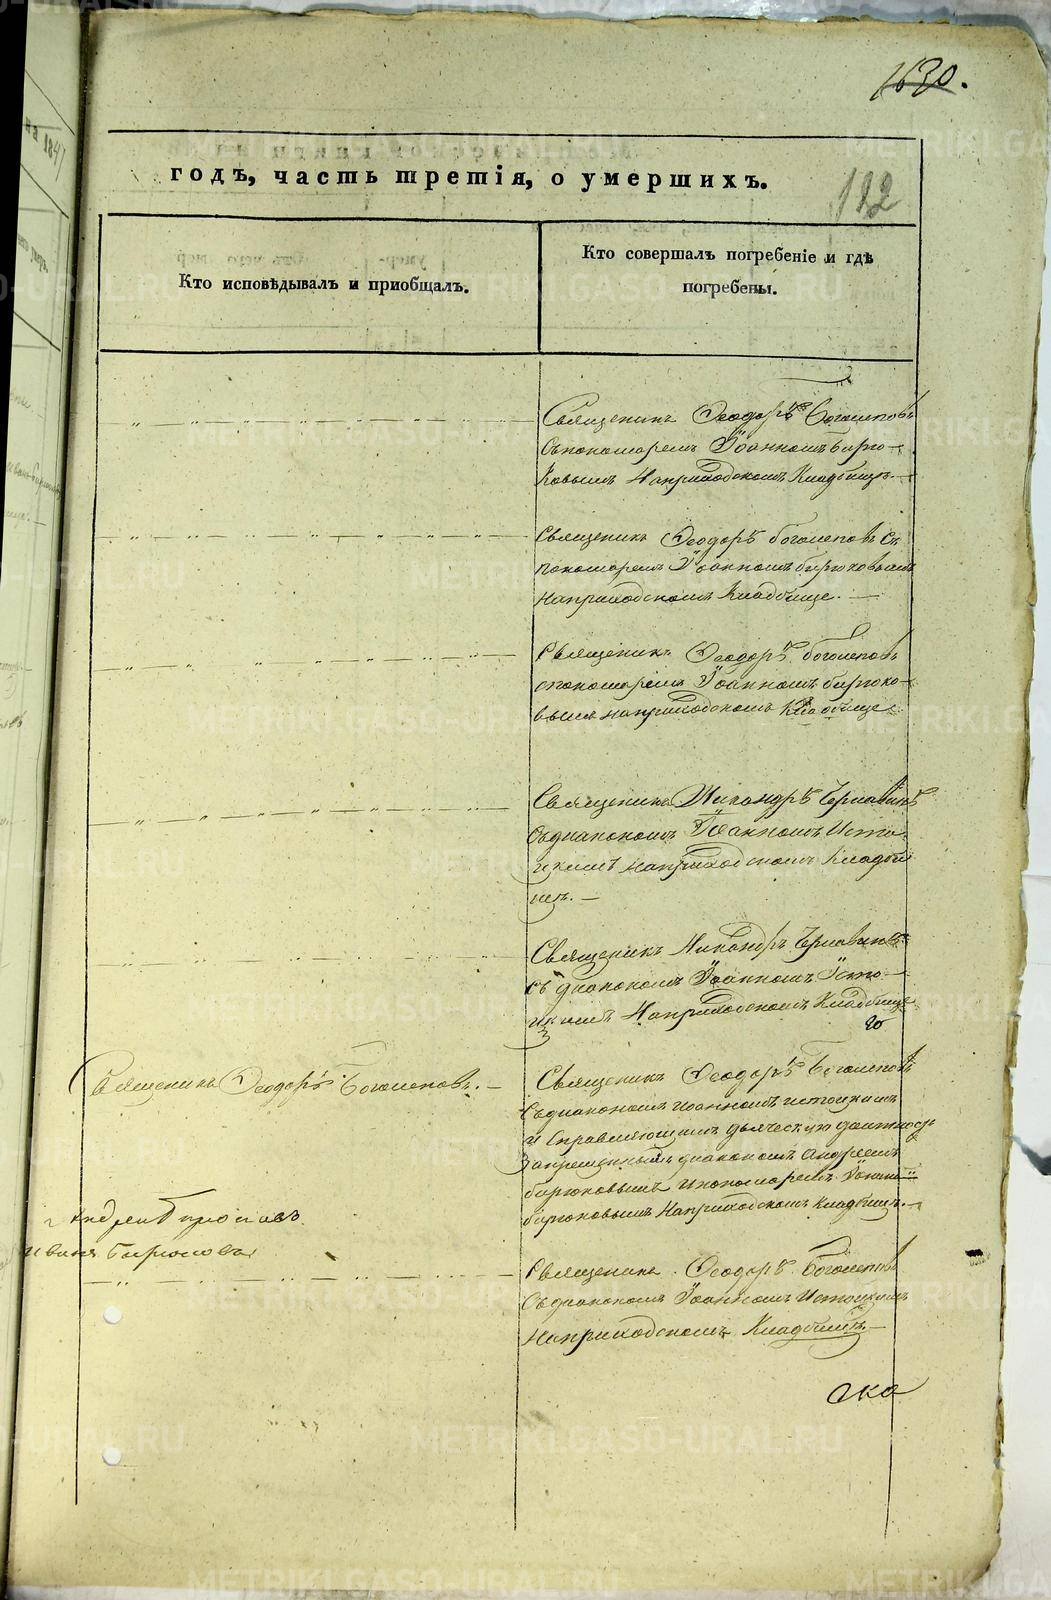 1630.
годъ, часть третія, о умершихъ.
122
Кто исповѣдывалъ и приобщалъ.
Кто совершалъ погребеніе и гдѣ
погребены.
Священикъ Ѳеодоръ Боголеповъ
Съ пономаремъ Іоанномъ Бирю-
ковымъ На приходскомъ Кладбищѣ.
Священикъ Ѳеодоръ Боголеповъ Съ
пономаремъ Іоанномъ бирюковымъ
На приходскомъ Кладбище.
Священикъ Ѳеодоръ боголеповъ
с пономаремъ Іоанномъ бирюко-
вымъ на приходскомъ Кладбище
Священикъ Никандръ
Съ диакономъ Іоанномъ Исто-
цкимъ на приходскомъ Кладби
щѣ.
Священикъ Никандръ
съ диакономъ Іоанномъ Исто-
цкимъ На приходскомъ Кладбище
Священикъ Ѳеодоръ Боголеповъ.
Священикъ Ѳеодоръ Боголеповъ
Съ диакономъ иоанномъ истоцкимъ
и Справляющимъ дьяческую должность
Запрещеннымъ диакономъ Андреемъ
бирюковымъ и пономаремъ Іоанномъ
бирюковымъ На приходскомъ Кладбищѣ.
Андрей Бирюковъ
Иванъ Бирюковъ
Священикъ Ѳеодоръ Боголеповъ
Съ диакономъ Іоанномъ Истоцкимъ
На приходскомъ Кладбищѣ
METRIKI.GASO-URAL.RU